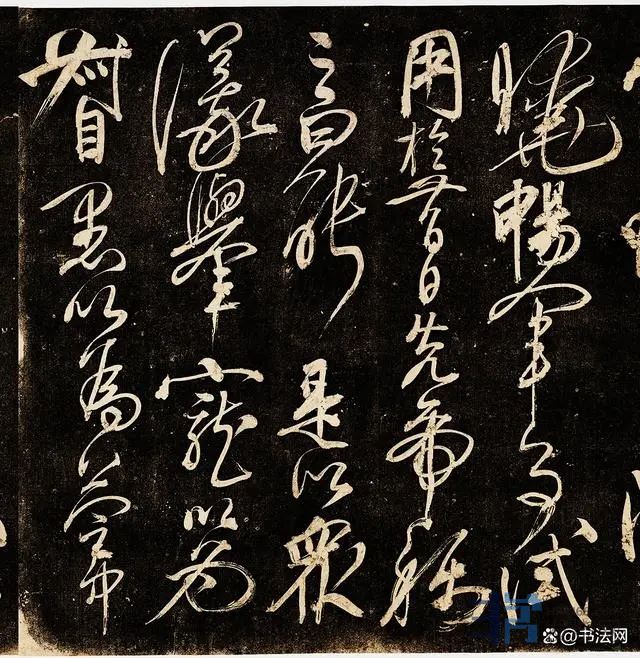 曉暢軍事試
用於昔日先帝稱
之曰能是以眾
議舉寵以為
督愚以為營中
@书法网